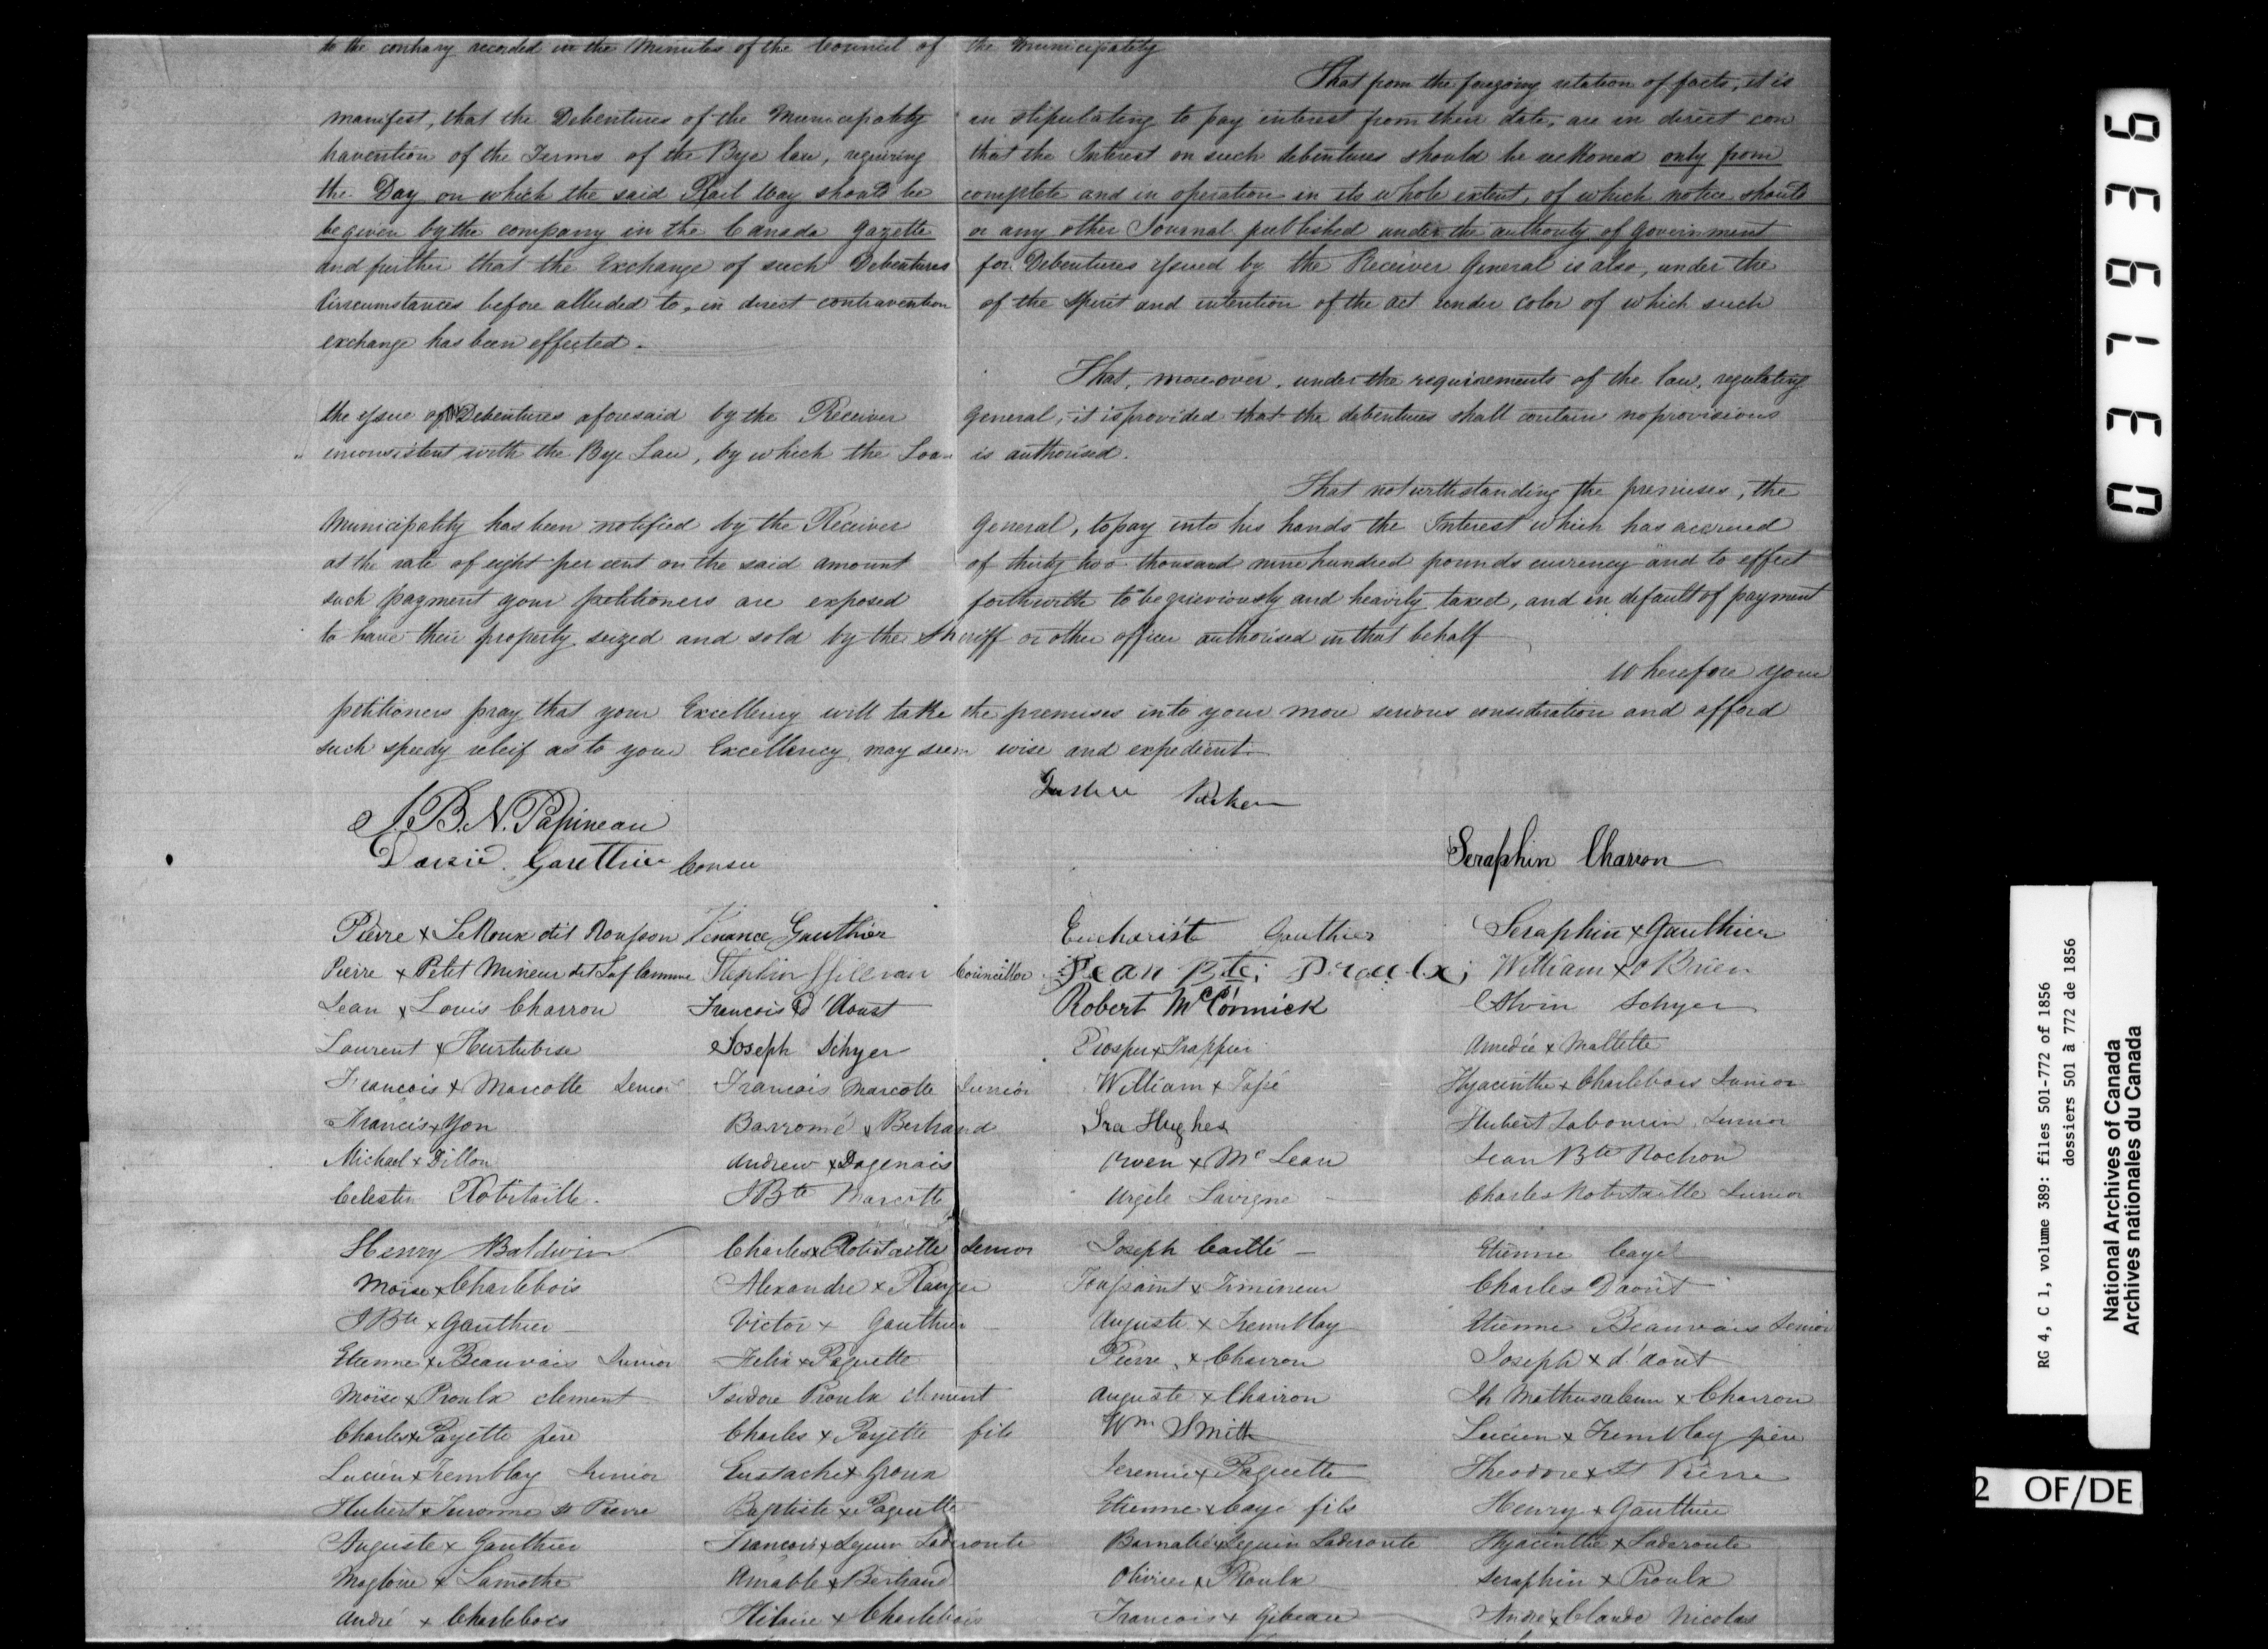 to the contrary recorded in the Minutes of the Council of the Municipality
That from the foregoing relation of facts, it is
manifest, that the Debentures of the Municipality in stipulating to pay interest from their date, are in direct con
travention of the Terms of the Bye law, requiring that the Interest on such debentures should be reckoned only from
the Day on which the said Rail Way should be complete and in operation in its whole extent, of which notice should
be given by the company in the Canada Gazette or any other Journal published under the authority of Government
and further that the Exchange of such Debentures for Debentures issued by the Receiver General is also, under the
Circumstances before alluded to, in direct contravention of the spirit and intention of the act under color of which such
exchange has been effected.
That, moreover, under the requirements of the law, regulating
the issue of Debentures aforesaid by the Receiver General, it is provided that the debentures shall contain no provisions
inconsistent with the Bye Law, by which the Loan is authorised.
That notwithstanding the premises, the
Municipality has been notified by the Receiver General, to pay into his hands the Interest which has accrued
at the rate of eight per cent on the said amount of thirty two thousand nine hundred pounds currency and to effect
such payment your petitioners are exposed forthwith to be grieviously and heavily taxed, and in default of payment
to have their property seized and sold by the Sheriff or other officer authorised in that behalf
Wherefore your
petitioners pray that your Excellency will take the premises into your more serious consideration and afford
such speedy releif as to your Excellency may seem wise and expedient.
J. B. N. Papineau
Gauthier Seraphin Charron
Pierre x LeRoux dit Rousson Venance Gauthier Euchariste Gauthier Seraphin x Gaulthier
Pierre x Petit Mineur dit Laflamme Councillor Jean Bte Proulx William x O Brien
Jean x Louis Charron Francois D'Aoust Robert McCormick Alvin Schyer
Laurent x Hurtubise Joseph Schyer Prosper x Trappier Amedée x Mallette
Francois x Marcotte Senior Francois Marcotte Junior William x Papé Hyacinthe x Charlebois Junior
Francis x Yon Barromé x Bertrand Ira Hughes Hubert Labourin Junior
Michael x Dillon Andrew x Dagenais Owen x Mc Lean Jean Bte Rochon
Celestin Robitaille J Bte Marcotte Urgéle Lavigne Charles Robitaille Junior
Henry Baldwin Charles x Robitaille Senior Joseph Caillé Etienne Cayé
Moise x Charlebois Alexandre x Toussaint x Timineur Charles Daoût
J Bte x Gauthier Victor x Gauthier Auguste x Tremblay Etienne Beauvais Senior
Etienne x Beauvais Junior Felix x Paquette Pierre x Charron Joseph x d'août
Moïse x Proulx clement Isidore Proulx clement Auguste x Charron Jh Mathusalem x Charron
Charles x Payette père Charles x Payette fils Wm Smith Lucien x Tremblay père
Lucien x Tremblay Junior Eustache x Groux Jeremie x Paquette Theodore x St Pierre
Hubert x Jerome St Pierre Baptiste x Paquette Etienne x Cayé fils Henry x Gauthier
Auguste x Gauthier Francois x Seguin Laderoute Barnabé x Seguin Laderoute Hyacinthe x Laderoute
Magloire x Lamothe Amable x Bertrand Olivier x Proulx Seraphin x Proulx
André x Charlebois Hilaire x Charlebois Francois x Gibeau André x Claude Nicolas
037936
RG 4, C 1, volume 389: files 501-772 of 1856
dossiers 501 à 772 de 1856
National Archives of Canada
Archives nationales du Canada
2 OF/DE